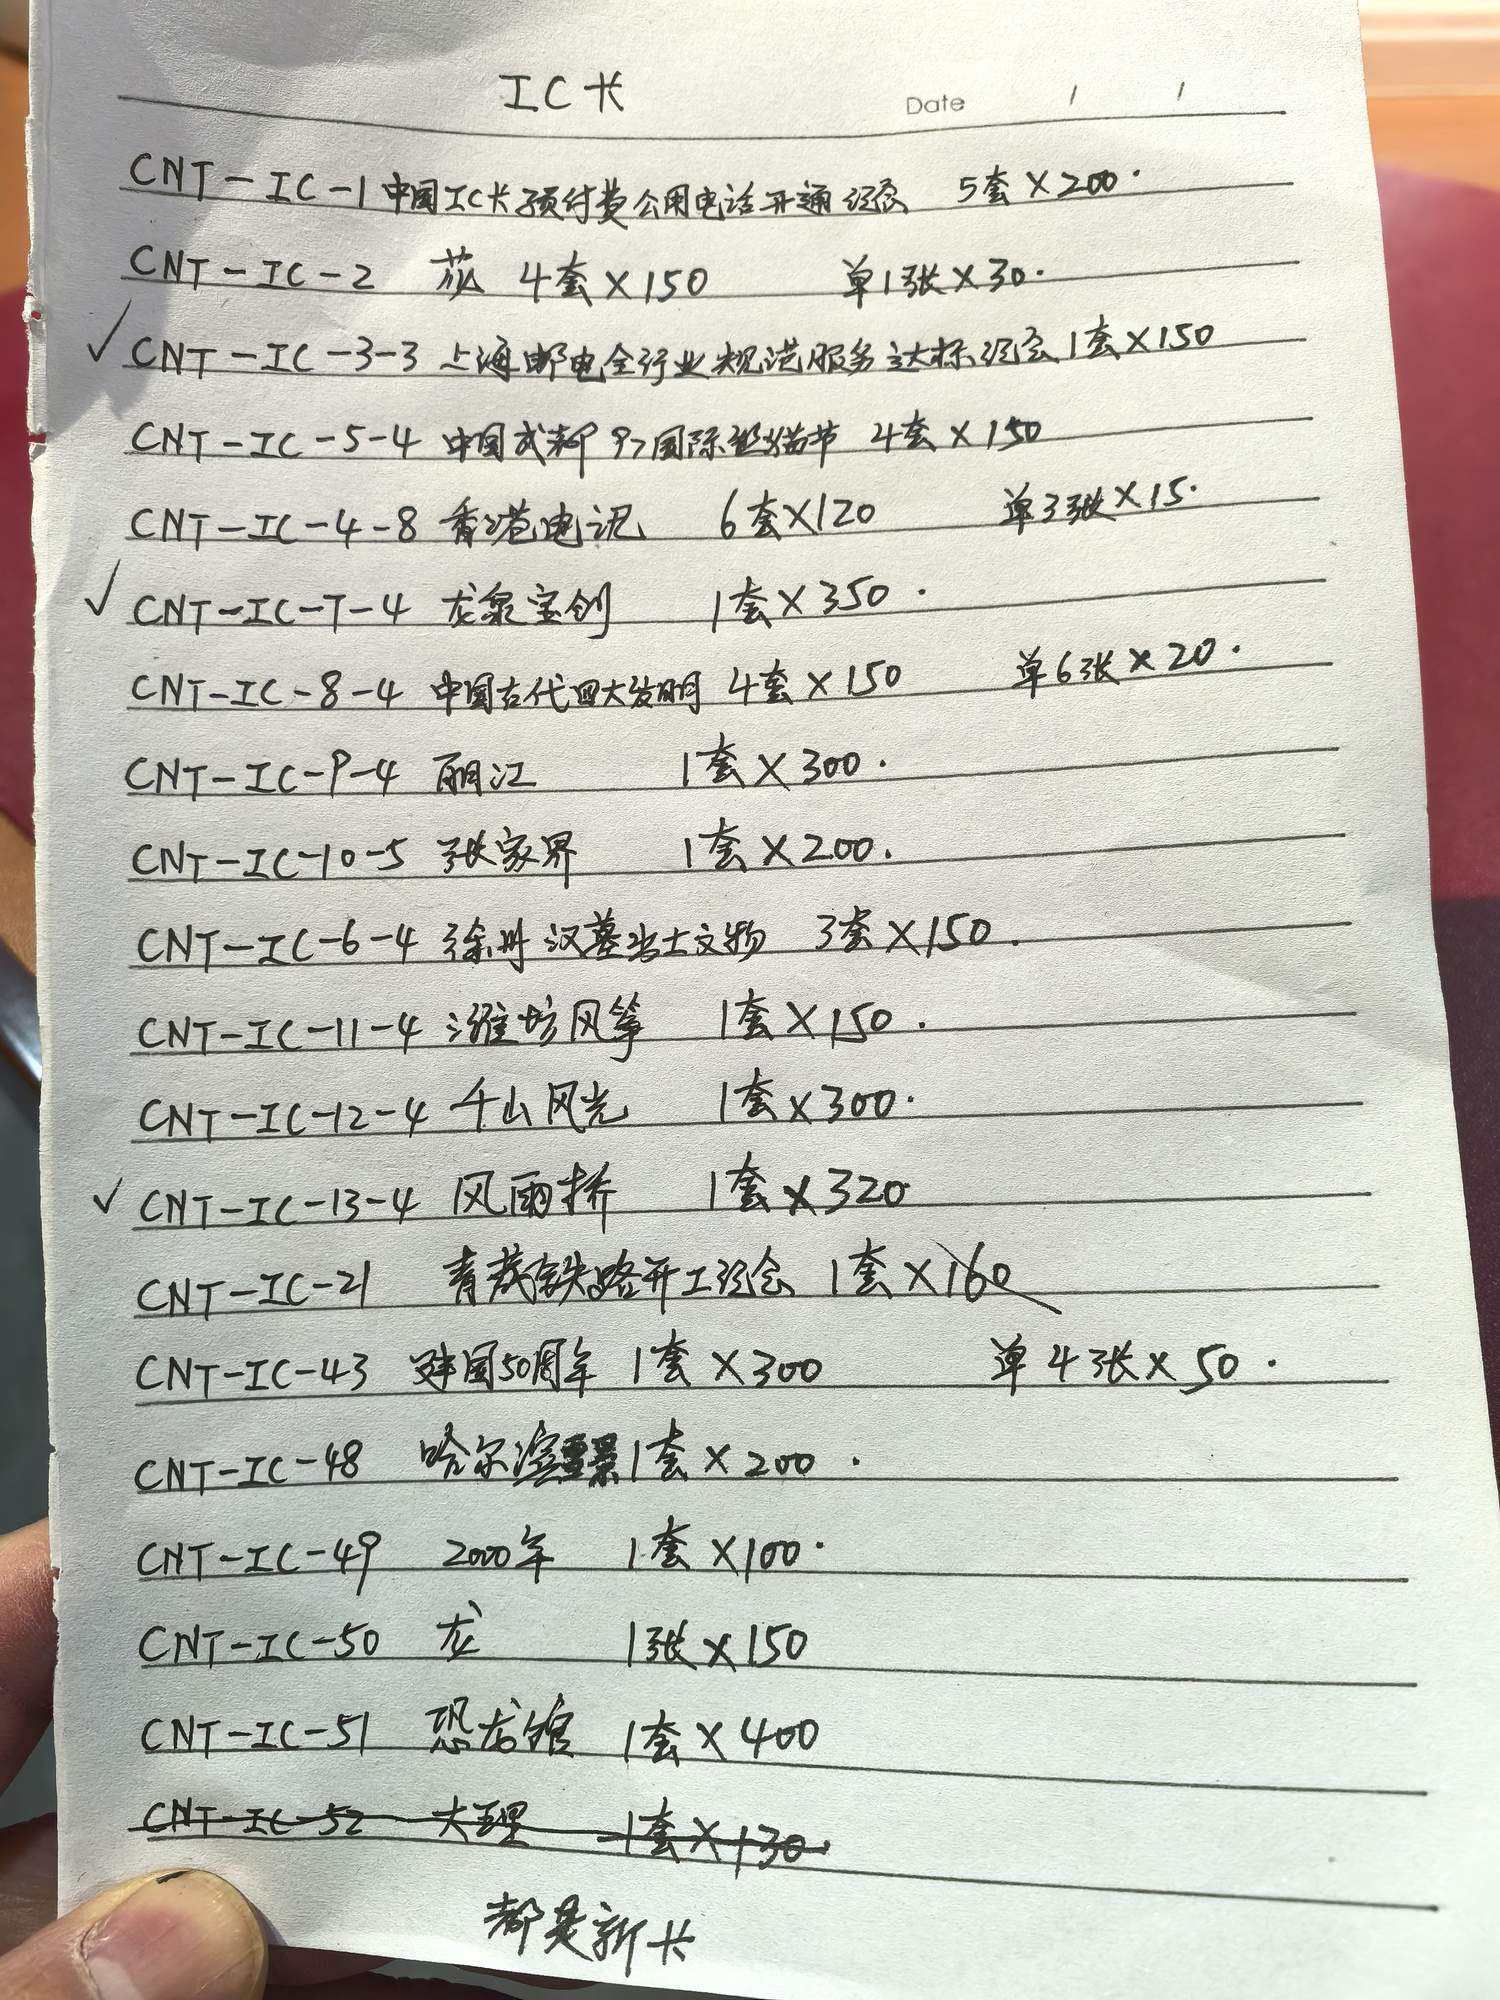 IC卡
Date / /
CNT-IC-1 中国IC卡预付费公用电话开通纪念 5套×200.
CNT-IC-2 花 4套×150 单1张×30.
✓CNT-IC-3-3 上海邮电全行业规范服务达标纪念 1套×150
CNT-IC-5-4 中国成都97国际熊猫节 4套×150
CNT-IC-4-8 香港电讯 6套×120 单3张×15.
✓CNT-IC-7-4 龙泉宝剑 1套×350.
CNT-IC-8-4 中国古代四大发明 4套×150 单6张×20.
CNT-IC-9-4 丽江 1套×300.
CNT-IC-10-5 张家界 1套×200.
CNT-IC-6-4 徐州汉墓出土文物 3套×150.
CNT-IC-11-4 潍坊风筝 1套×150.
CNT-IC-12-4 千山风光 1套×300.
✓CNT-IC-13-4 风雨桥 1套×320
CNT-IC-21 青藏铁路开工纪念 1套×160
CNT-IC-43 建国50周年 1套×300 单4张×50.
CNT-IC-48 哈尔滨雪景 1套×200.
CNT-IC-49 2000年 1套×100.
CNT-IC-50 龙 1张×150
CNT-IC-51 恐龙馆 1套×400
CNT-IC-52 大理 1套×130
都是新卡